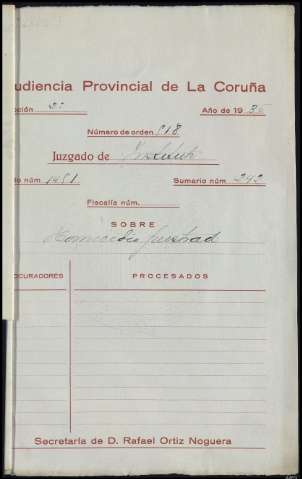 udiencia Provincial de La Coruña
ción 2ª Año de 1936
Número de orden 518
Juzgado de Instituto
lo núm. 1451. Sumario núm. 242
Fiscalía núm.
SOBRE
Homicidio frustrad
OCURADORES PROCESADOS
Secretaría de D. Rafael Ortiz Noguera